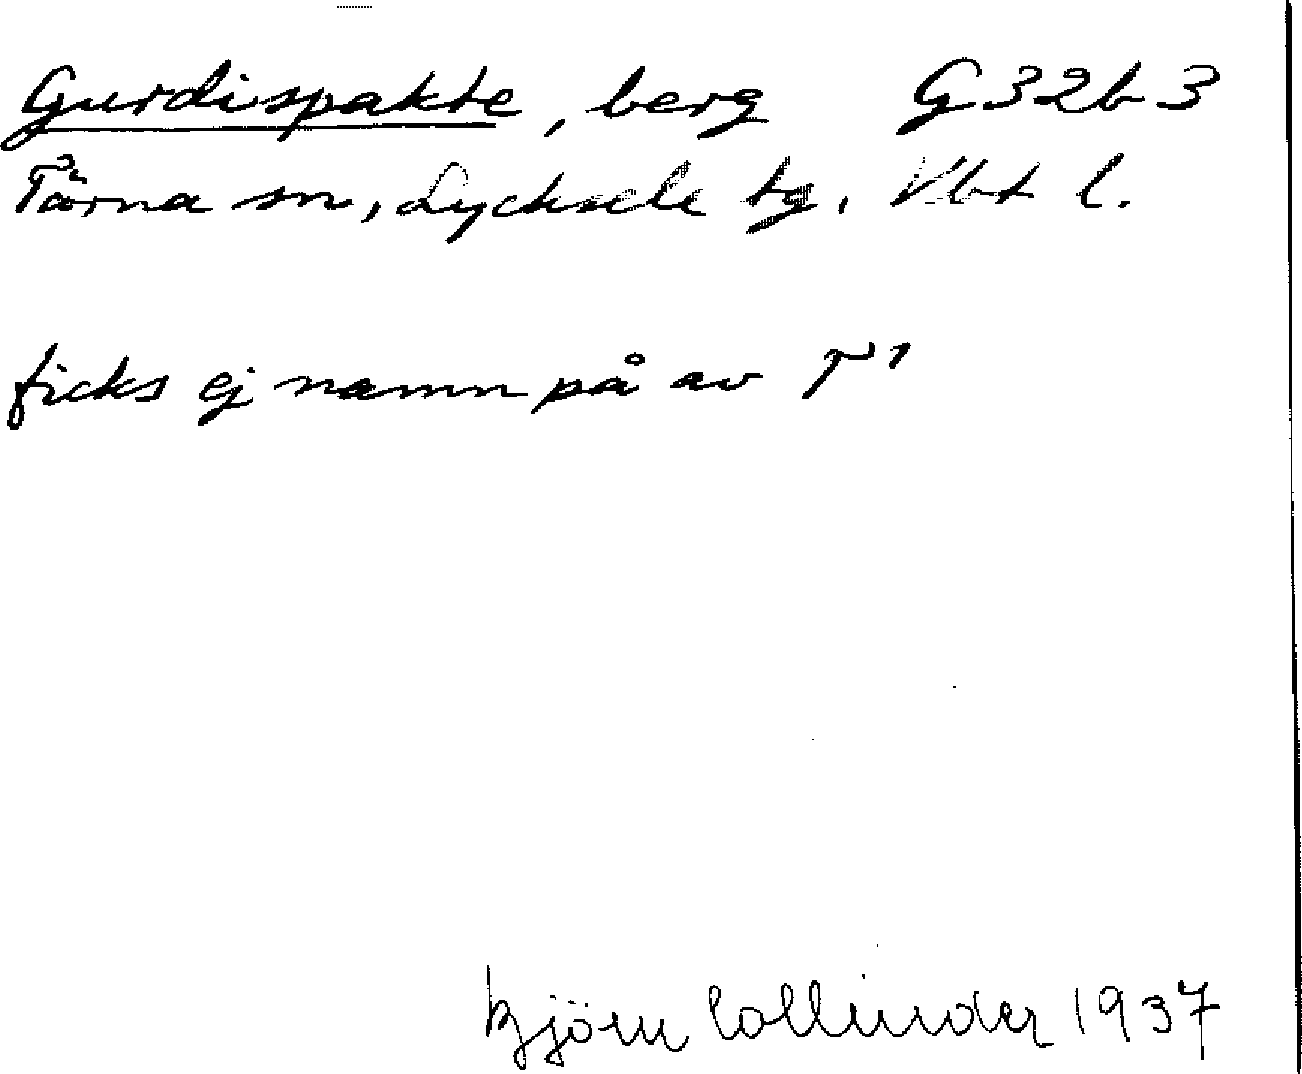 Gurdispakte, berg G 32 b 3
Tärna sn, Lycksele tg, Vbt l.
ficks ej namn på av T¹
Björn Collinder 1937